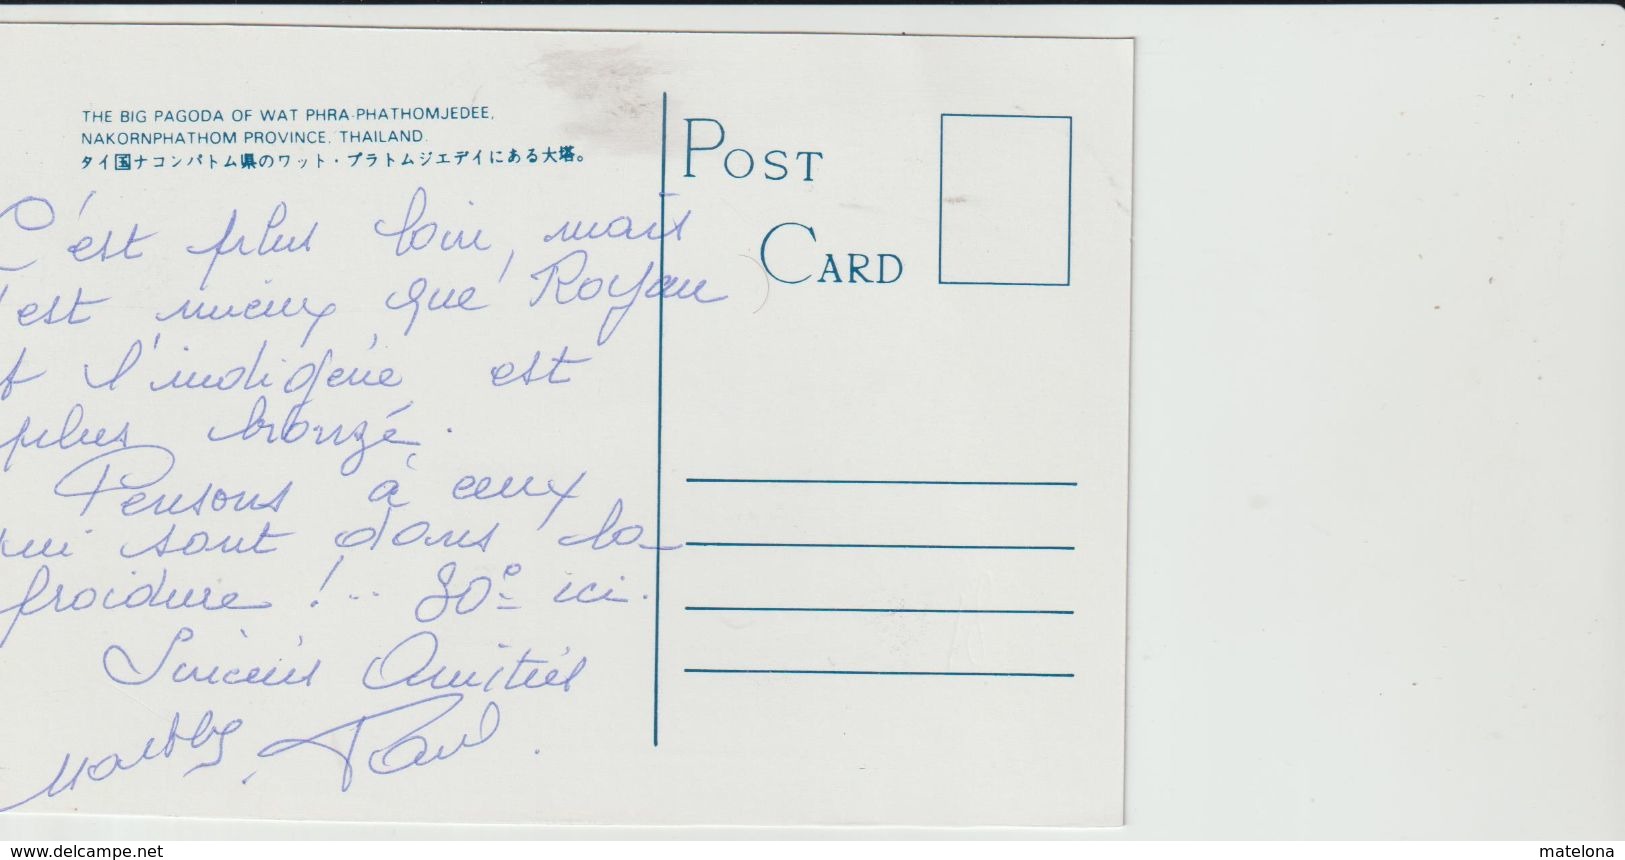 THE BIG PAGODA OF WAT PHRA-PHATHOMJEDEE,
NAKORNPHATHOM PROVINCE, THAILAND.
タイ国ナコンパトム県のワット・プラトムジエデイにある大塔。
POST
CARD
C'est plus loin, mais
'est mieux que Royan
t l'indigène est
plus bronzé.
Pensons à ceux
ui sont dans la
froidure !.. 30° ici.
Sincères Amitiés
Paul.
www.delcampe.net
matelona